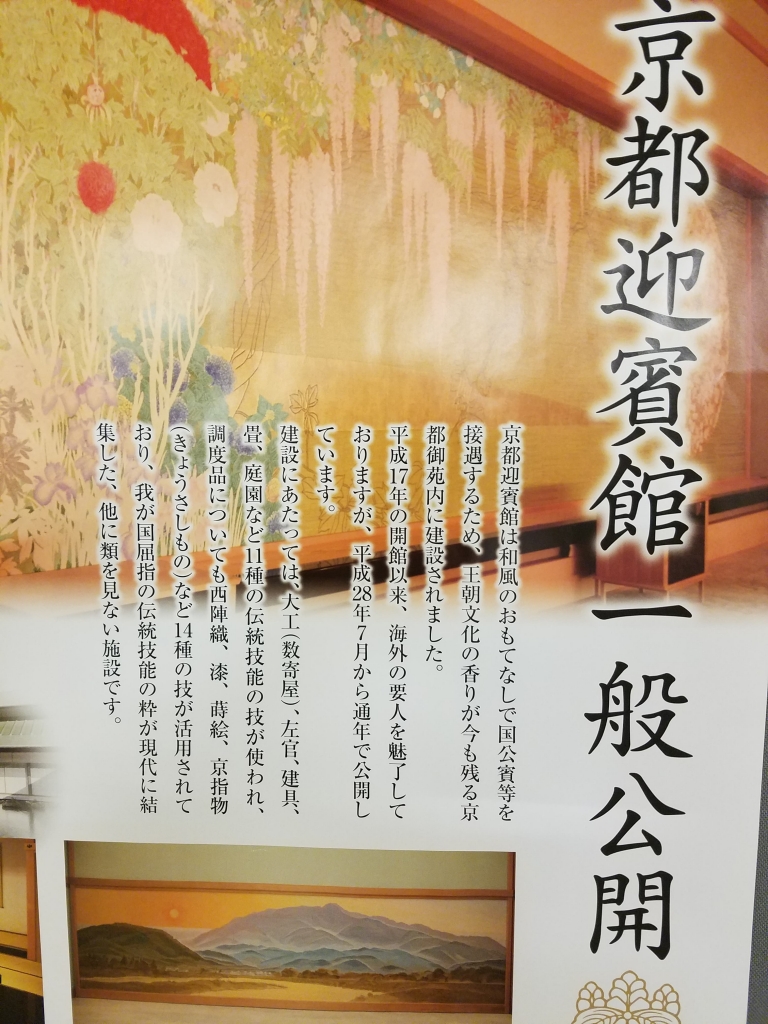 京都迎賓館 一般公開
京都迎賓館は和風のおもてなしで国公賓等を
接遇するため、王朝文化の香りが今も残る京
都御苑内に建設されました。
平成17年の開館以来、海外の要人を魅了して
おりますが、平成28年7月から通年で公開し
ています。
建設にあたっては、大工(数寄屋)、左官、建具、
畳、庭園など11種の伝統技能の技が使われ、
調度品についても西陣織、漆、蒔絵、京指物
(きょうさしもの)など14種の技が活用されて
おり、我が国屈指の伝統技能の粋が現代に結
集した、他に類を見ない施設です。